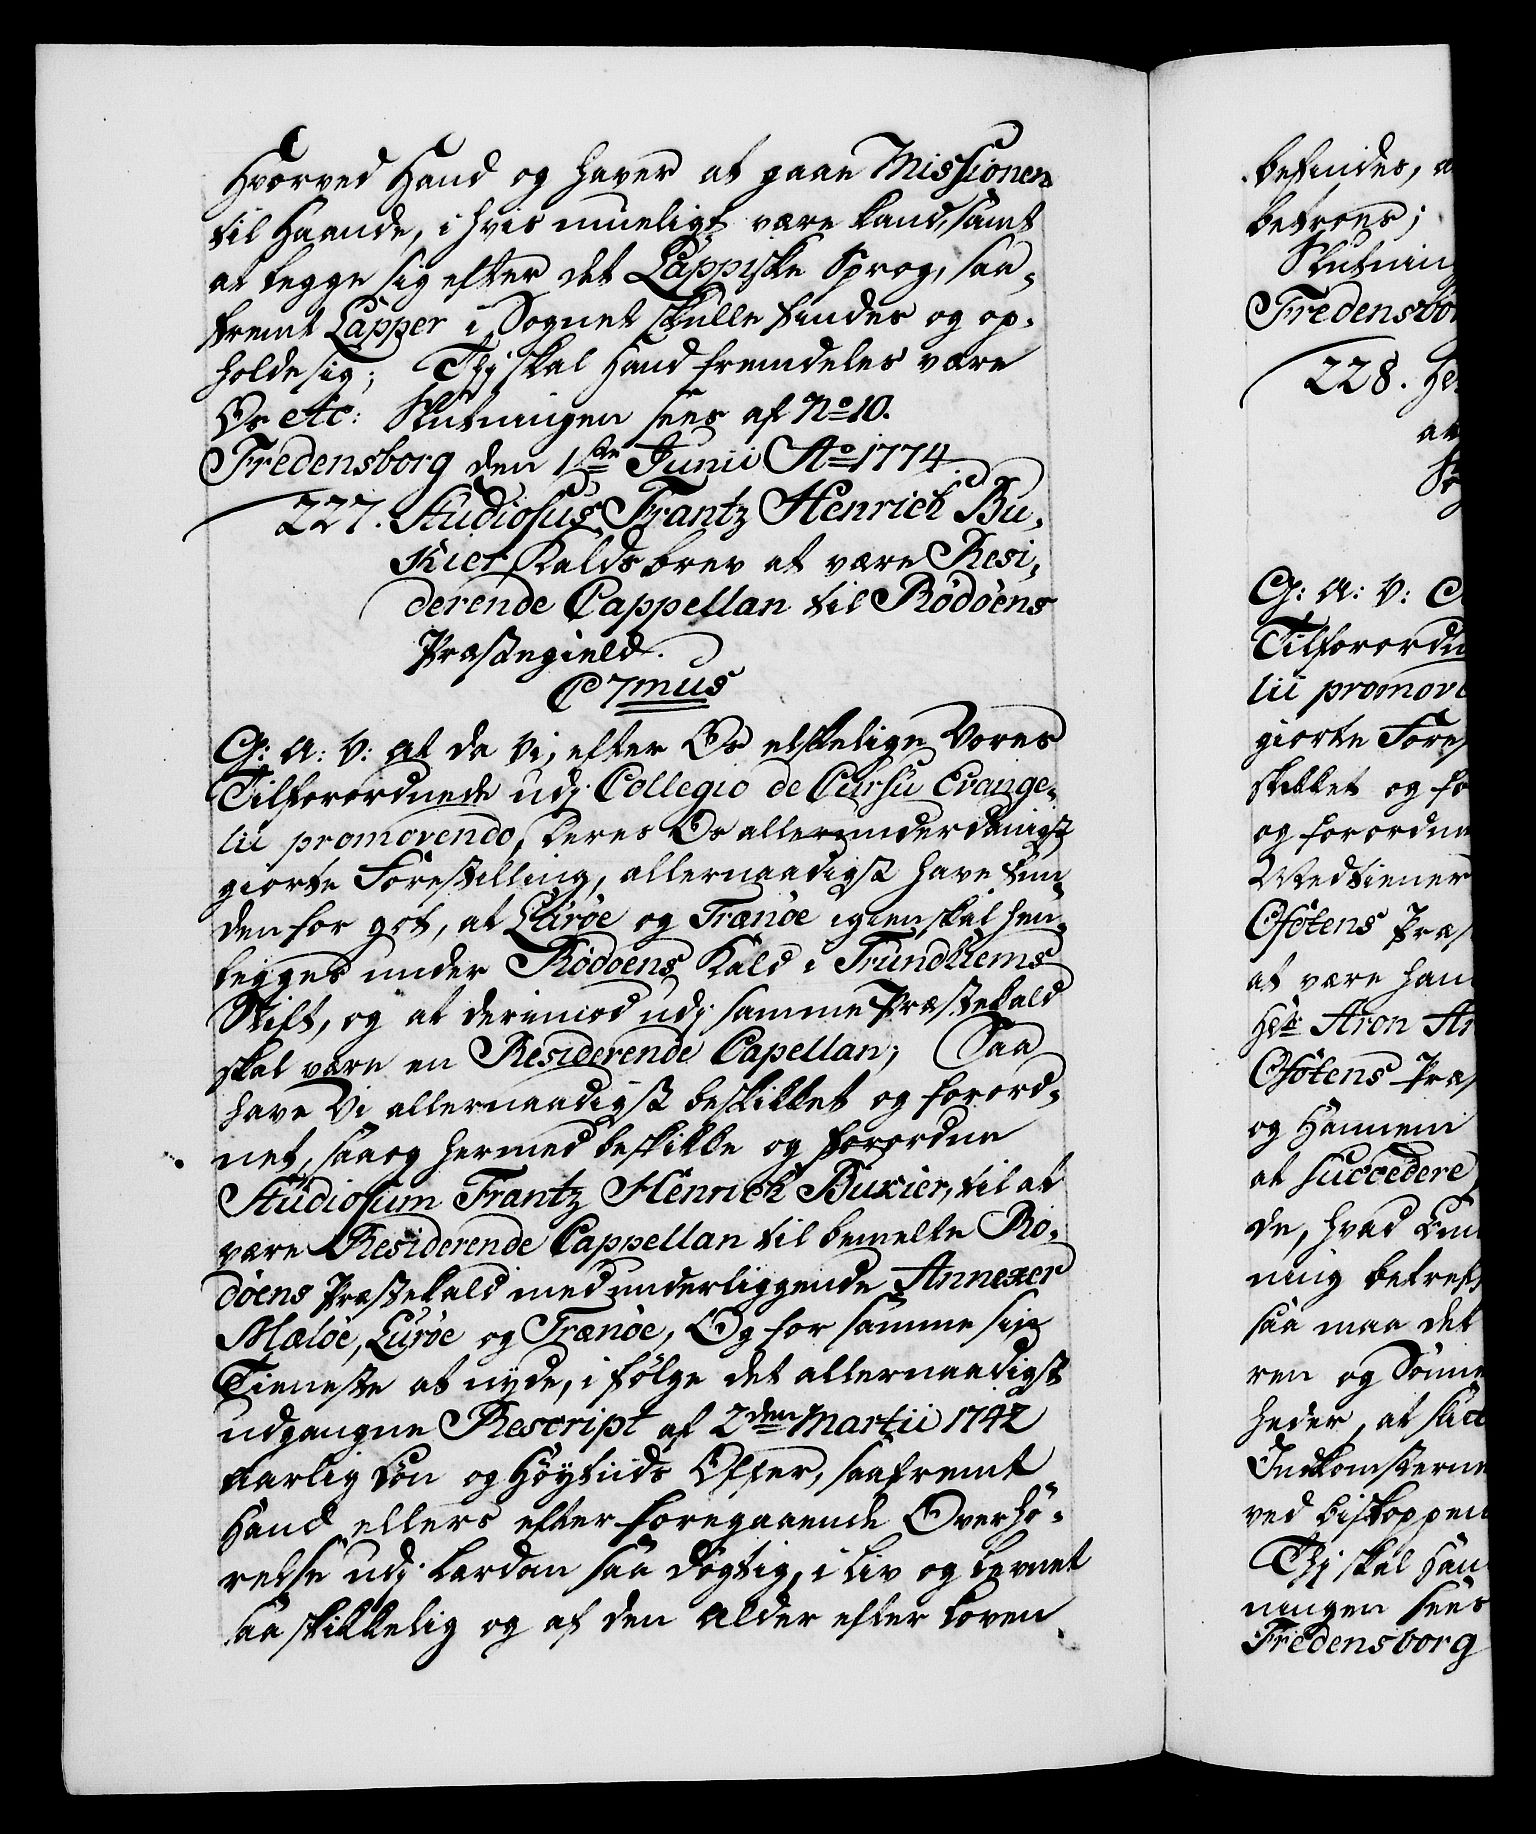 Hvorved Hand og haver at gaae Missionen
til Haande, i hvis mueligt være kand, samt
at legge sig efter det Lappiske Sprog, saa-
fremt Lapper i Sognet skulle findes og op-
holde sig; Thj skal Hand fremdeles være
Os etc: Slutningen sees af No 10.
Fredensborg den 1ste Junii Ao 1774.
227. Studiosus Frantz Henrich Bu-
xier, Kaldsbrev at være Resi-
derende Cappellan til Rödöens
Præstegield.
C 7mus
G: A: V: at da Vi, efter Os elskelige Vores
Tilforordnede udj Collegio de Cursu Evange-
lii promovendo, deres Os allerunderdanigst
giorte Forestilling, allernaadigst have fun-
den for got, at Luröe og Trænöe igien skal hen-
legges under Rödöens Kald i Trundhiems
Stift, og at derimod udj samme Præstekald
skal være en Residerende Capellan; Saa
have Vi allernaadigst beskikket og forord-
net, saa og hermed beskikke og forordne
Studiosum Frantz Henrich Buxier, til at
være Residerende Cappellan til bemelte Rö-
döens Præstekald med underliggende Annexer
Mælöe, Luröe og Trænöe, Og for samme sin
Tieneste at nyde, i fölge det allernaadigst
udgangne Rescript af 2den Martii 1742
aarlig Lön og Höytiids Offer, saafremt
Hand ellers efter foregaaende Overhö-
relse udj Lærdom saa dögtig, i Liv og Levnet
saa skikkelig og af den Alder efter Loven
befindes, a
betroes;
Slutning
Fredensbor
228. He
at
G: A: V:
Tilforordn
lii promov
giorte Fores
skikket og fo
og forordne
Medtiener
Ofötens Præs
at være han
Hr: Aron Ar
Ofötens Præs
og Hannem
at succedere
de, hvad
ning betref
saa maa det
ren og Sönne
heder, at
Indkomsterne
ved Biskoppen
Thj skal Han
ningen sees
Fredensborg